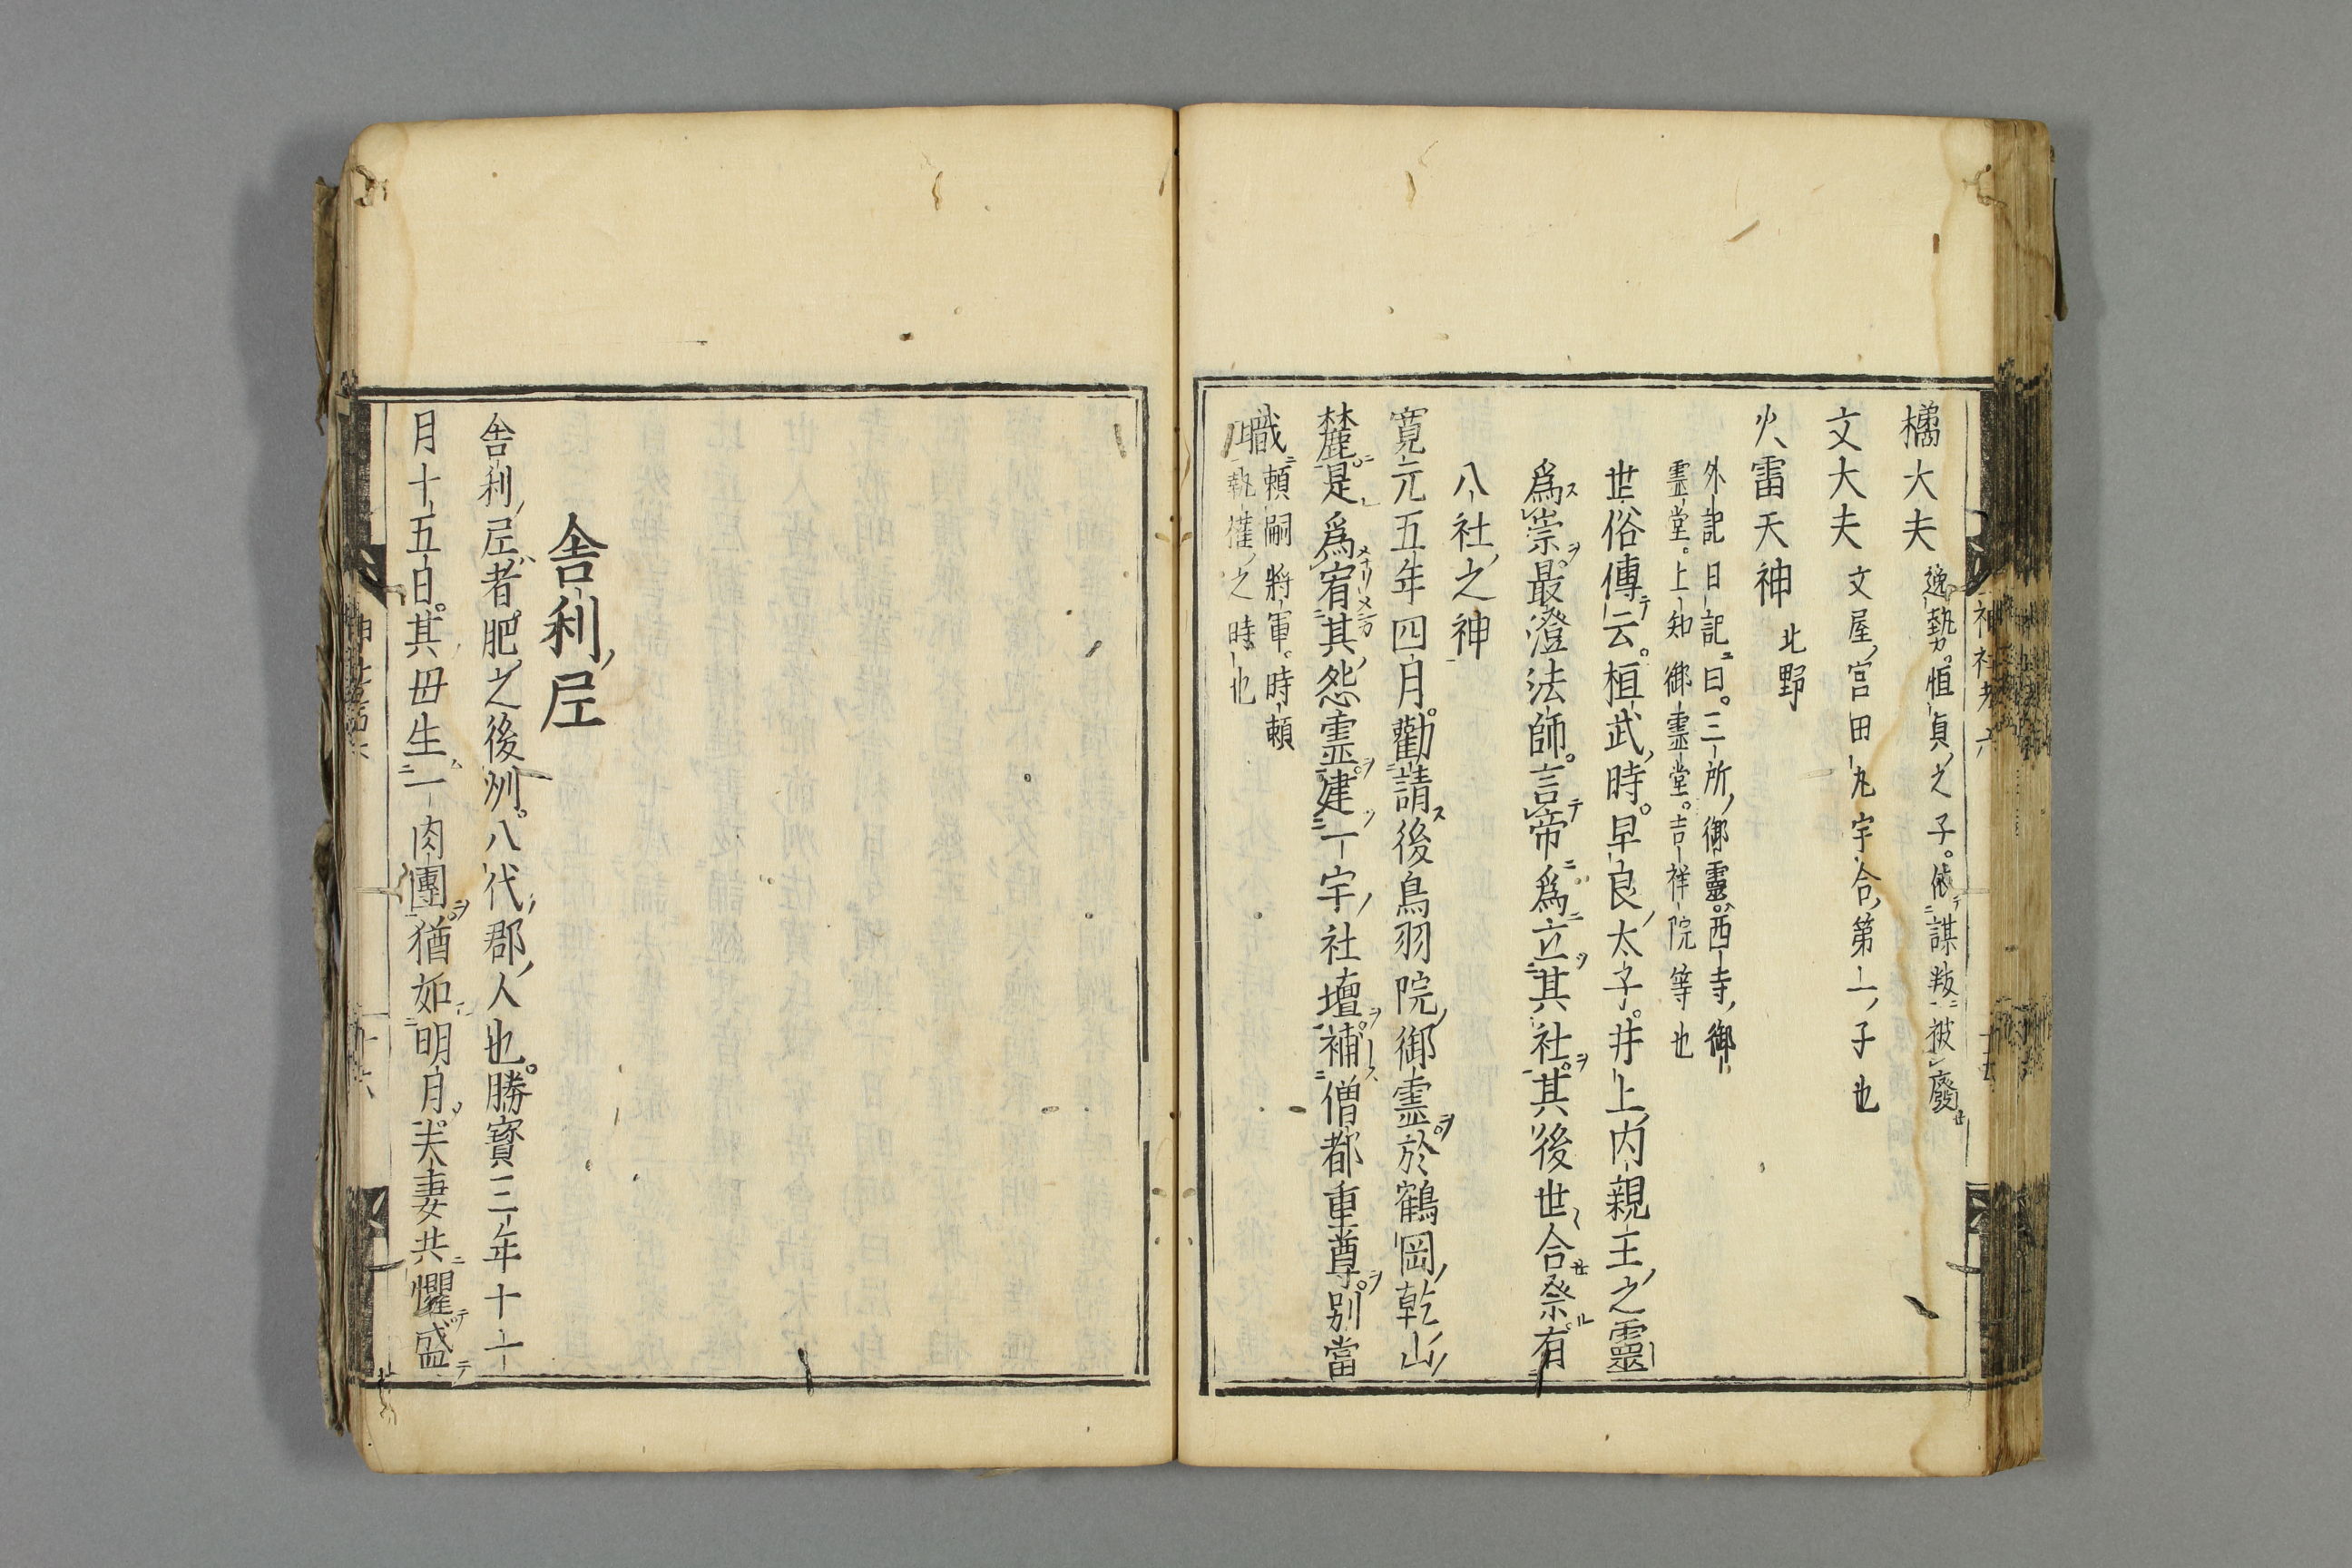 橘大夫 逸勢恒貞之子依謀叛被廢
文大夫 文屋宮田丸宇合第一子也
火雷天神 北野
外記日記曰三所御靈西寺御
霊堂上知御霊堂吉祥院等也
世俗傳云桓武時早良太子井上内親王之靈
爲崇最澄法師言帝爲立其社其後世合祭有
八社之神
寛元五年四月勸請後鳥羽院御霊於鶴岡乾山
麓是爲宥其怨霊建一宇社壇補僧都重尊別當
職 頼嗣將軍時頼
執権之時也
舎利尼
舎利尼者肥之後州八代郡人也勝寳三年十一
月十五日其母生一肉團猶如明月夫妻共懼盛